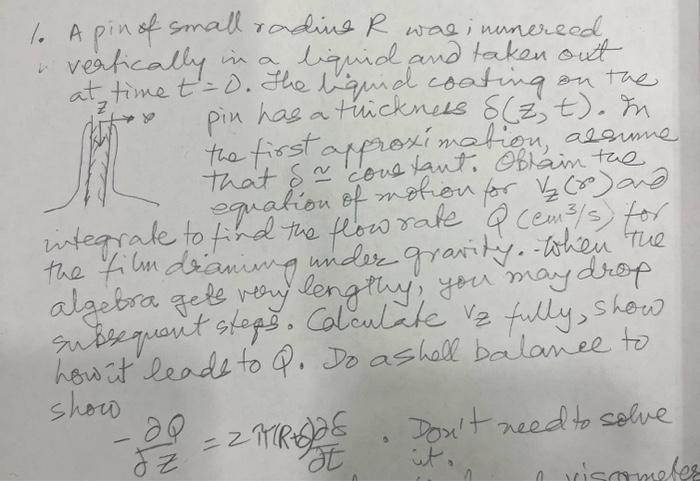 1. A pin of small radius R was immersed
vertically in a liquid and taken out
at time t=0. The liquid coating on the
z
r
pin has a thickness δ(z, t). In
the first approximation, assume
that δ ≃ constant. Obtain the
equation of motion for Vz(r) and
integrate to find the flow rate Q (cm³/s) for
the film draining under gravity. When the
algebra gets very lengthy, you may drop
subsequent steps. Calculate vz fully, show
how it leads to Q. Do a shell balance to
show
-∂Q/∂z = 2π(R+δ)∂δ/∂t . Don't need to solve
it.
viscometer